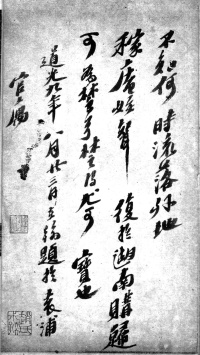 不知何時流落外地
復於湖南購歸
可為楚弓楚得尤可寶也
道光九年八月廿三日題於袁浦
官寓